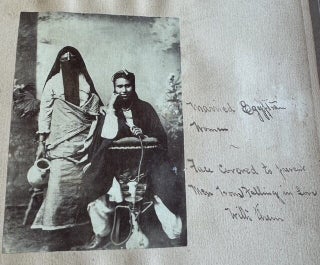 Married Egyptian
Women
~
Face Covered to prevent
Men from Falling in Love
With them